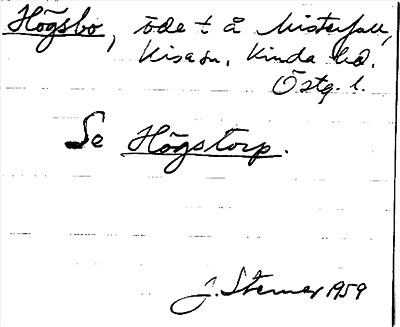 Högsbo, öde t å Misterfall,
Kisa sn, Kinda hd.
Östg. l.
Se Högstorp.
J. Sterner 1959